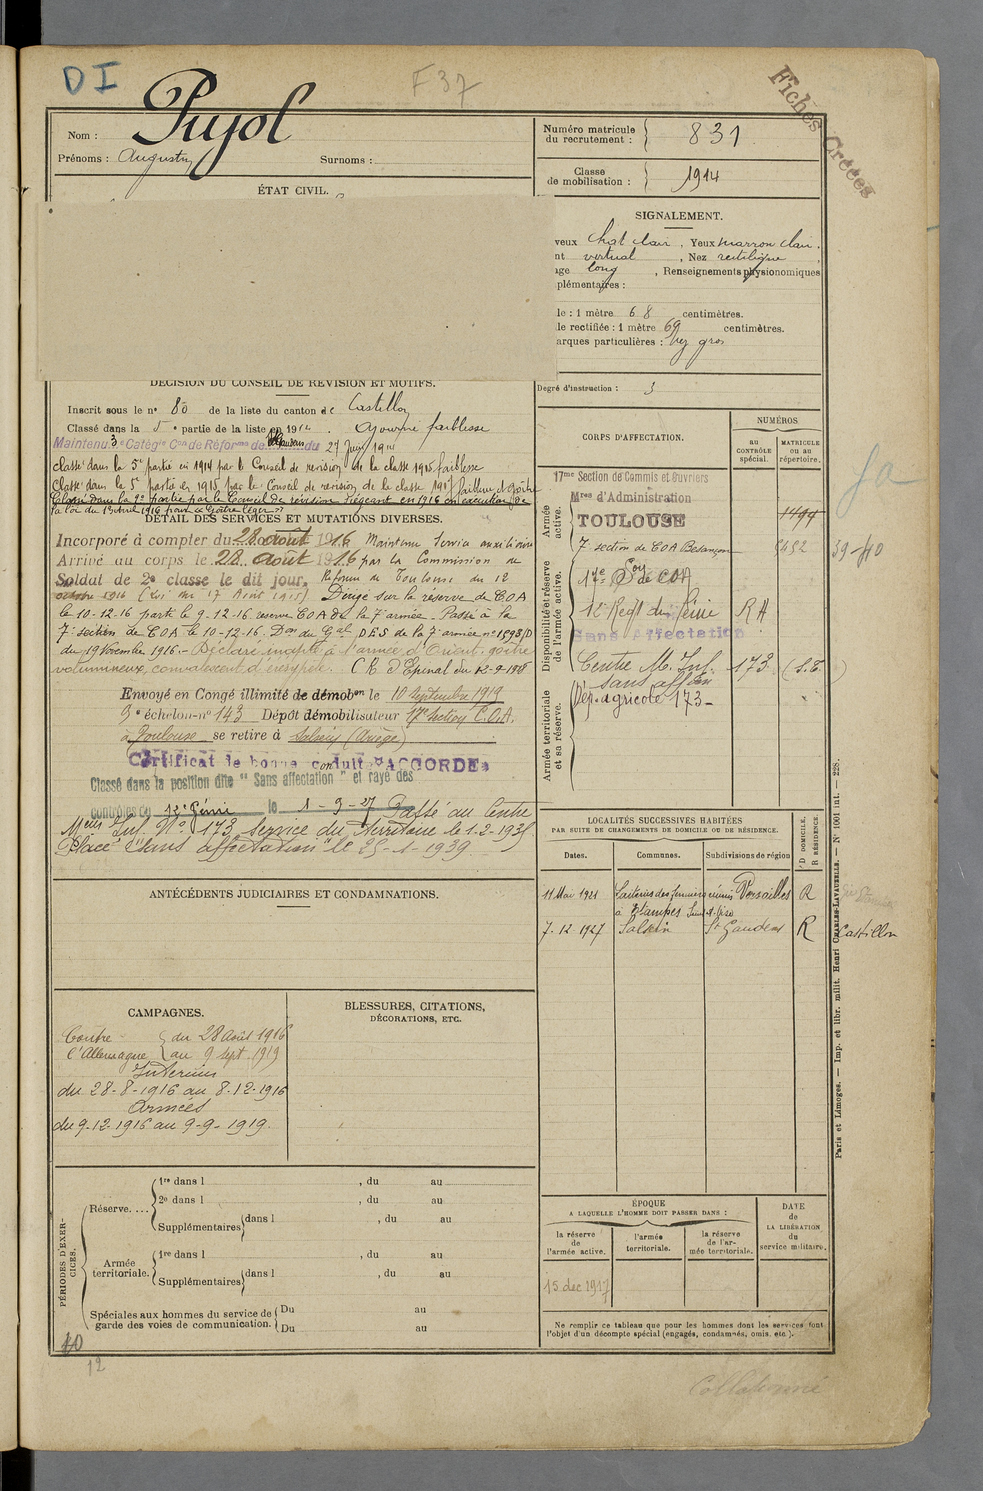 DI
F 37
Fiches Créées
Nom : Pujol
Prénoms : Augustin Surnoms :
Numéro matricule
du recrutement : 831
Classe
de mobilisation : 1914
ÉTAT CIVIL.
SIGNALEMENT.
veux chat clair, Yeux marron clair.
nt vertical, Nez rectiligne,
age long, Renseignements physionomiques
plémentaires :
le : 1 mètre 68 centimètres.
le rectifiée : 1 mètre 69 centimètres.
arques particulières :
Degré d'instruction : 3
DÉCISION DU CONSEIL DE RÉVISION ET MOTIFS.
Inscrit sous le n° 80 de la liste du canton de Castillon
Classé dans la 5e partie de la liste en 1914. Ajourné faiblesse
Maintenu 3e Catégie Con de Réforme de St Gaudens du 27 Juin 19
Classé dans la 5e partie en 1914 par le Conseil de révision de la classe 1915 faiblesse
Classé dans la 5e partie en 1915 par le Conseil de révision de la classe 1917 faiblesse et goître
Classé dans la 2e partie par le Conseil de révision siégeant en 1916 en exécution de
la loi du 13 Avril 1916 pour « Goître léger »
DÉTAIL DES SERVICES ET MUTATIONS DIVERSES.
Incorporé à compter du 28 août 1916 Maintenu Service auxiliaire
Arrivé au corps le 28 août 1916 par la Commission de
Soldat de 2e classe le dit jour, Réforme de Toulouse du 12
octobre 1916 (Loi du 17 Août 1915) Dirigé sur la réserve de COA
le 10-12-16 parti le 9-12-16 réserve COA de la 7e armée. Passé à la
7e section de COA le 10-12-16. Don du Gal D.E.S. de la 7e armée n° 1593/D
du 19 Novembre 1916. - Déclaré inapte à l'armée d'Orient. goître
volumineux, convalescent d'érésypèle. C.R. d'Epinal du 12-9-1918
Envoyé en Congé illimité de démobon le 10 Septembre 1919
9e échelon - n° 143 Dépôt démobilisateur 17e Section C.O.A.
à Toulouse se retire à Salsein (Ariège)
Certificat de bonne conduite "ACCORDÉ"
Classé dans la position dite "Sans affectation" et rayé des
contrôles du 12e Génie le 1-9-27 Passé au Centre
Meurs Inf. N° 173 Service du Territoire le 1-2-193
Placé "sans affectation" le 25-1-1939
CORPS D'AFFECTATION.
NUMÉROS
au
CONTRÔLE
spécial.
MATRICULE
ou au
répertoire.
Armée
active.
17me Section de Commis et Ouvriers
Mres d'Administration
TOULOUSE
1494
7e section de COA Besançon 5452 39-40
Disponibilité et réserve
de l'armée active.
17e Son de COA
12e Regt du Génie RA
Sans Affectation
Centre M. Inf. 173 (S.T.)
sans affon
Armée territoriale
et sa réserve.
Dép. agricole 173
LOCALITÉS SUCCESSIVES HABITÉES
PAR SUITE DE CHANGEMENTS DE DOMICILE OU DE RÉSIDENCE.
Dates.
Communes.
Subdivisions de région
D DOMICILE.
R RÉSIDENCE.
11 Mai 1921 Laiteries des fermiers réunis Versailles R
à Etampes Seine et Oise
7-12-1927 Salsein St Gaudens R Castillon
ANTÉCÉDENTS JUDICIAIRES ET CONDAMNATIONS.
CAMPAGNES.
Contre du 28 Août 1916
l'Allemagne au 9 sept 1919
Intérieur
du 28-8-1916 au 8-12-1916
Armées
du 9-12-1916 au 9-9-1919.
BLESSURES, CITATIONS,
DÉCORATIONS, ETC.
PÉRIODES D'EXERCICES.
Réserve....
1re dans l , du au
2e dans l , du au
Supplémentaires dans l , du au
Armée
territoriale.
1re dans l , du au
Supplémentaires dans l , du au
Spéciales aux hommes du service de
garde des voies de communication.
Du au
Du au
ÉPOQUE
A LAQUELLE L'HOMME DOIT PASSER DANS :
la réserve
de
l'armée active.
l'armée
territoriale.
la réserve
de l'armée territoriale.
DATE
de
LA LIBÉRATION
du
service militaire.
15 dec 1917
Ne remplir ce tableau que pour les hommes dont les services font
l'objet d'un décompte spécial (engagés, condamnés, omis, etc.).
Paris et Limoges. — Imp. et libr. milit. Henri CHARLES-LAVAUZELLE. — N° 1001 int. — 228.
40
12
Collationné